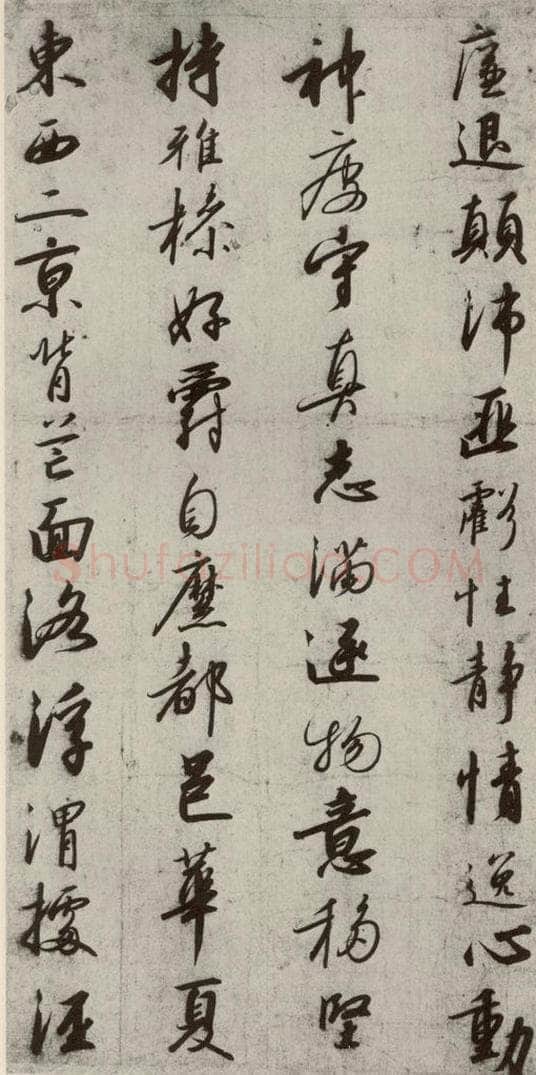 廉退顛沛匪虧性静情逸心動
神疲守真志滿逐物意移堅
持雅操好爵自縻都邑華夏
東西二京背芒面洛浮渭據涇
shufaziliao.COM